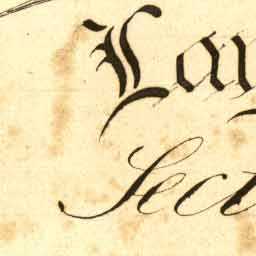 Lay
Sect